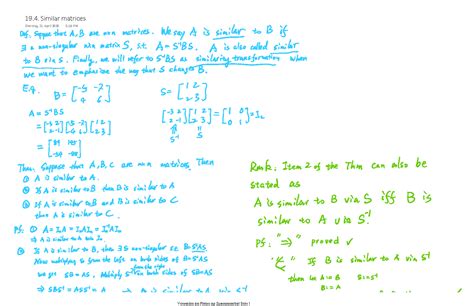 19.4. Similar matrices
Def. Suppose that A, B are n×n matrices. We say A is similar to B if
∃ a non-singular n×n matrix S, s.t. A = S⁻¹BS. A is also called similar
to B via S. Finally, we will refer to S⁻¹BS as similarity transformation when
we want to emphasize the way that S changes B.
E.g. B = [-5 -7; 4 6] S = [1 2; 2 3]
A = S⁻¹BS
= [-3 2; 2 -1] [-5 -7; 4 6] [1 2; 2 3]
[-3 2; 2 -1] [1 2; 2 3] = [1 0; 0 1] = I₂
S⁻¹ S
Thm. Suppose that A, B, C are n×n matrices. Then
① A is similar to A.
② If A is similar to B then B is similar to A
③ If A is similar to B and B is similar to C
then A is similar to C.
Pf: ① A = IₙA = IₙAIₙ = Iₙ⁻¹AIₙ
⇒ A is similar to A via Iₙ.
② A is similar to B, then ∃ S non-singular s.t. B = S⁻¹AS
Now multiplying S from the left on both sides of B = S⁻¹AS
we get SB = AS. Multiply S⁻¹ from the right on both sides of SB = AS
⇒ SBS⁻¹ = ASS⁻¹ = A
Rmk: Item 2 of the Thm can also be
stated as
A is similar to B via S iff B is
similar to A via S⁻¹.
Pf: "⇒" proved ✓
"⇐" If B is similar to A via S⁻¹
then let A:=B